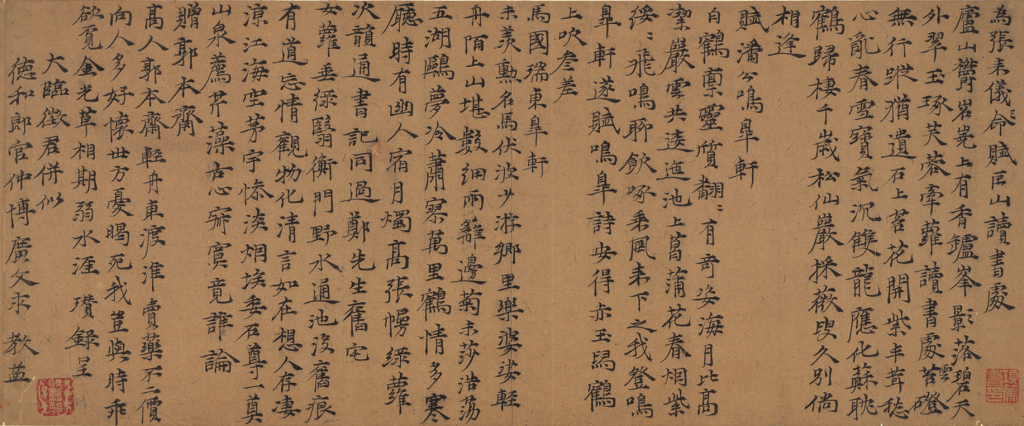 為張来儀命賦匡山讀書處
廬山欝岧嶤上有香鑪峯影落碧天
外翠玉琢芙蓉牽蘿讀書處苔磴
雲
無行蹤猶遺石上苔花開紫丰茸嵇
心亂眷雪竇氣沉雙龍應化蘇耽
鶴歸棲千歲松仙巖採薇叟久別倘
相逢
賦潘公鳴臯軒
白鶴禀靈質翻翻有奇姿海月比高
潔嚴雲共逶迤池上菖蒲花春烟紫
綏綏飛鳴聊飲啄乘風来下之我登鳴
臯軒遂賦鳴臯詩安得赤玉舄鶴
上吹參差
馬國瑞東臯軒
未羡勲名馬伏波少游鄉里樂婆娑輕
舟陌上山堪數細雨籬邊菊未莎浩蕩
五湖鷗夢冷蕭寥萬里鶴情多寒
廳時有幽人宿月燭高張幌綠蘿
次韻通書記同過鄭先生舊宅
女蘿垂綠翳衡門野水通池沒舊痕
有道忘情觀物化清言如在想人存凄
涼江海空茅宇慘淡烟埃委石尊一奠
山泉薦芹藻古心寂寞竟誰論
贈郭本齋
高人郭本齋輕舟東渡淮賣藥不二價
向人多好懷世方憂暍死我豈與時乖
欲覓金光草相期弱水涯 瓚錄呈
大臨徵君併似
德和郎官仲博廣文求 教益